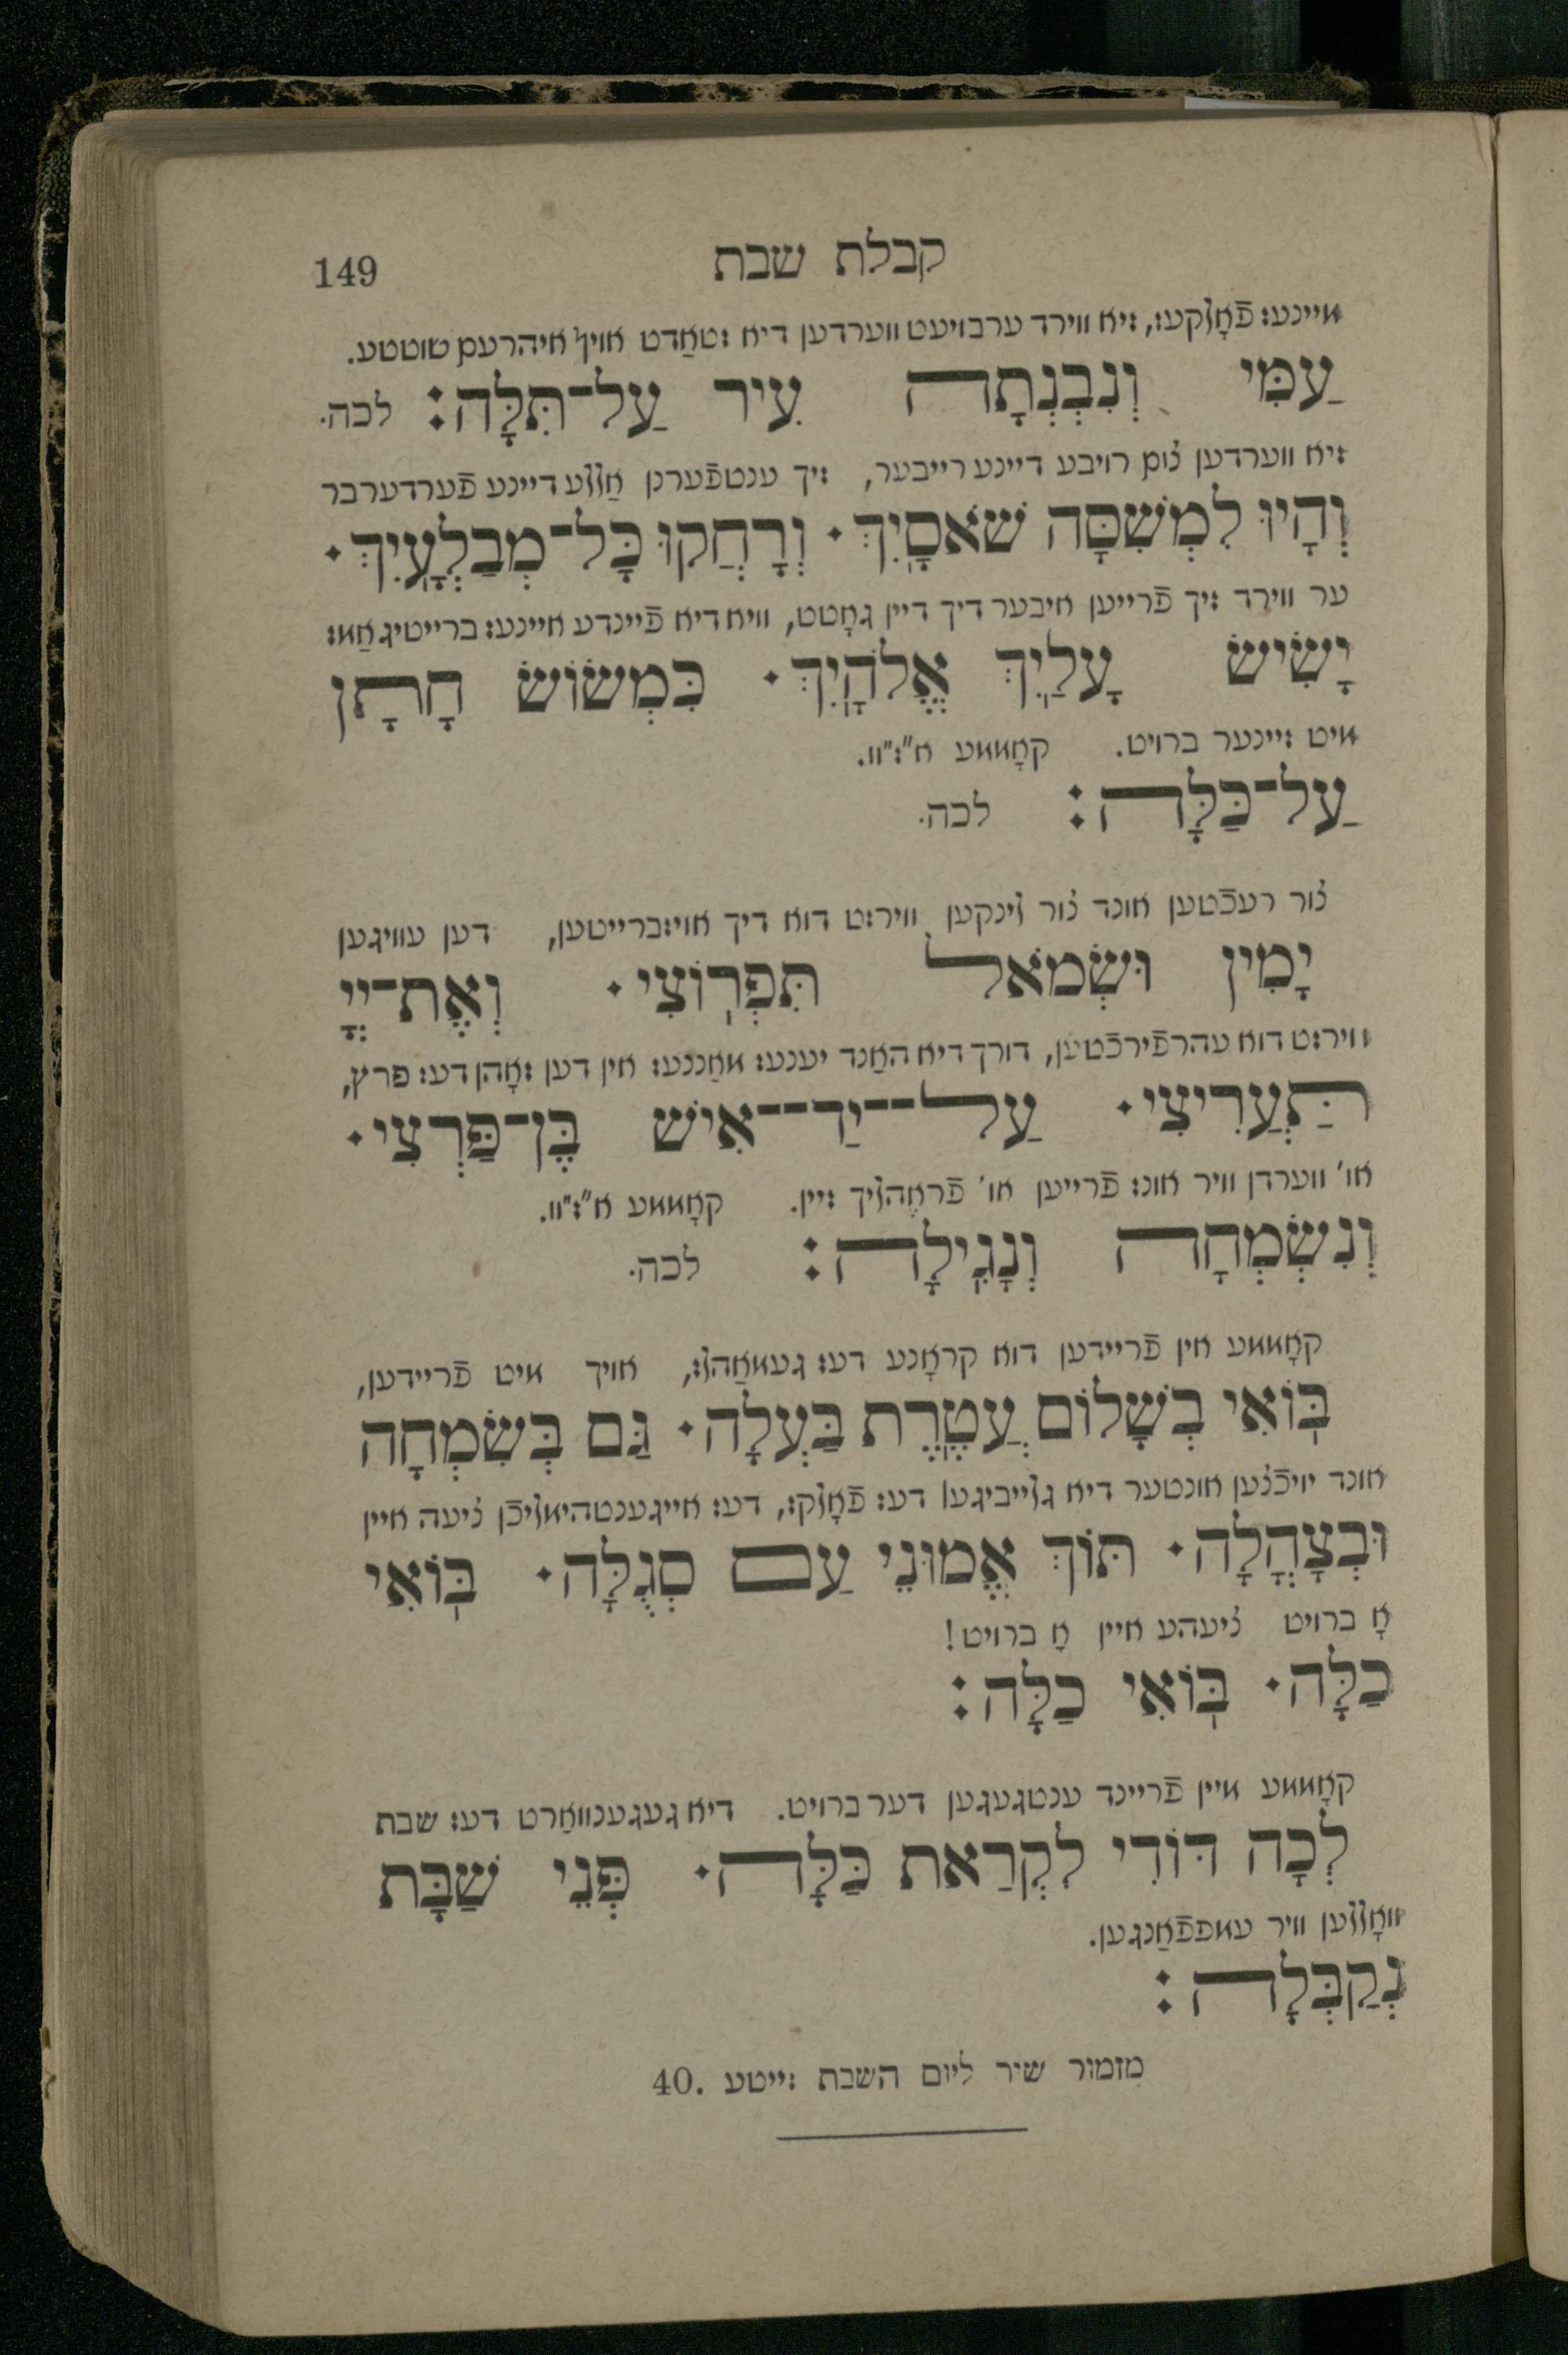 קבלת שבת 149
מיינעס פֿאָלקעס, זיא ווירד ערבויעט ווערדען דיא שטאַדט אויף איהרעם שוטטע.
עַמִּי וְנִבְנְתָה עִיר עַל־תִּלָּהּ׃ לכה.
זיא ווערדען צום רויבע דיינע רייבער, זיך ענטפֿערנן אַללע דיינע פֿערדערבר
וְהָיוּ לִמְשִׁסָּה שֹׁאסָיִךְ· וְרָחֲקוּ כָּל־מְבַלְעָיִךְ·
ער ווירד זיך פֿרייען איבער דיך דיין גאָטט, וויא דיא פֿיינדע איינעס ברייטיגאַמס
יָשִׂישׂ עָלַיִךְ אֱלֹהָיִךְ· כִּמְשׂוֹשׂ חָתָן
מיט זיינער ברויט. קאָממע א״ז״וו.
עַל־כַּלָּה׃ לכה.
צור רעכֿטען אונד צור לינקען ווירסט דוא דיך אויזברייטען, דען עוויגען
יָמִין וּשְׂמֹאל תִּפְרֽוֹצִי· וְאֶת־יְיָ
ווירסט דוא עהרפֿירכֿטען, דורך דיא האַנד יענעס מאַננעס אין דען זאָהן דעס פרץ,
תַּעֲרִיצִי· עַל־־יַד־־אִישׁ בֶּן־פַּרְצִי·
או׳ ווערדן וויר אונס פֿרייען או׳ פֿראֶהליך זיין. קאָממע א״ז״וו.
וְנִשְׂמְחָה וְנָגִֽילָה׃ לכה.
קאָממע אין פֿריידען דוא קראָנע דעס געמאַהלס, אויך מיט פֿריידען,
בּֽוֹאִי בְשָׁלוֹם עֲטֶֽרֶת בַּעְלָהּ· גַּם בְּשִׂמְחָה
אונד יויכֿצען אונטער דיא גלייביגען דעס פֿאָלקס, דעס אייגענטהימליכֿן ציעה איין
וּבְצָהֳלָה· תּוֹךְ אֱמוּנֵי עַם סְגֻלָּה· בּֽוֹאִי
אָ ברויט ציעהע איין אָ ברויט!
כַלָּה· בּֽוֹאִי כַלָּה׃
קאָממע מיין פֿריינד ענטגעגען דער ברויט. דיא געגענוואַרט דעס שבת
לְכָה דוֹדִי לִקְרַאת כַּלָּה· פְּנֵי שַׁבָּת
וואָללען וויר עמפפֿאַנגען.
נְקַבְּלָה׃
מזמור שיר ליום השבת זייטע 40.